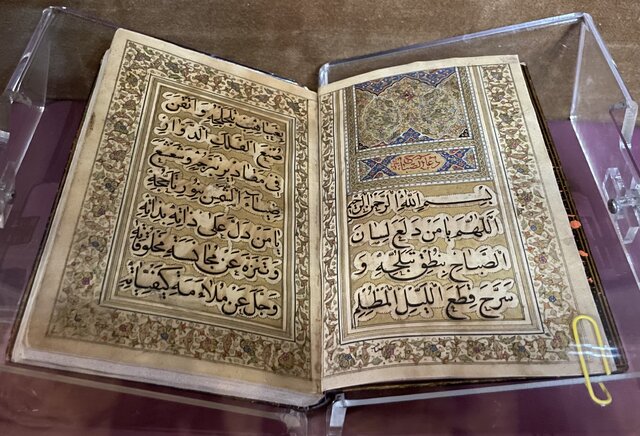 بسم الله الرحمن الرحيم
اللهم يا من دلع لسان
الصباح بنطق تبلجه و
سرح قطع الليل المظلم
بغياهب تلجلجه واتقن
صنع الفلك الدوار
في مقادير تبرجه وشعشع
ضياء الشمس بنور تاججه
يا من دل على ذاته بذاته
وتنزه عن مجانسة مخلوقاته
وجل عن ملاءمة كيفياته